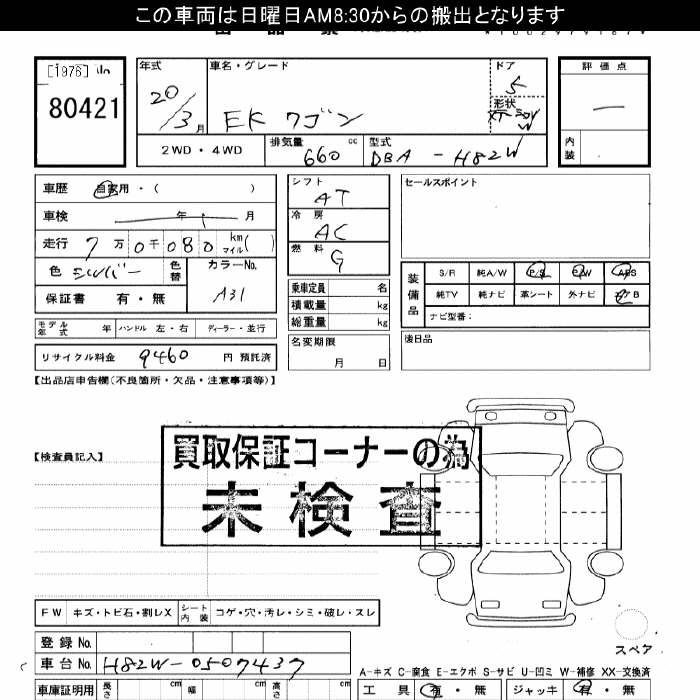 この車両は日曜日AM8:30からの搬出となります
[1976]
80421
年式
車名・グレード
ドア
評価点
20/3月
EK ワゴン
5
形状
内装
2WD・4WD
排気量
660
cc
型式
DBA-H82W
車歴
自家用・( )
車検
年
月
走行
7万0千080
km マイル( )
色
シルバー
色替
カラーNo.
A31
保証書
有・無
シフト
AT
冷房
AC
燃料
G
乗車定員
名
積載量
kg
総重量
kg
名変期限
月 日
セールスポイント
装備品
S/R
純A/W
P/S
P/W
ABS
純TV
純ナビ
革シート
外ナビ
エアB
ナビ型番:
後日品
モデル年式
年
ハンドル
左・右
ディーラー・並行
リサイクル料金
9460
円 預託済
【出品店申告欄(不良箇所・欠品・注意事項等)】
【検査員記入】
買取保証コーナーの為
未検査
FW
キズ・トビ石・割レX
シート内装
コゲ・穴・汚レ・シミ・破レ・スレ
スペア
登録No.
車台No.
H82W-0507437
A-キズ C-腐食 E-エクボ S-サビ U-凹ミ W-補修 XX-交換済
車庫証明用
長さ
cm
幅
cm
高さ
cm
工具
有・無
ジャッキ
有・無